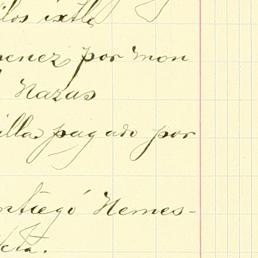 ilos ixtle
menez por mon
Nazas
illa pagado por
ntregó Nemes-
leta.